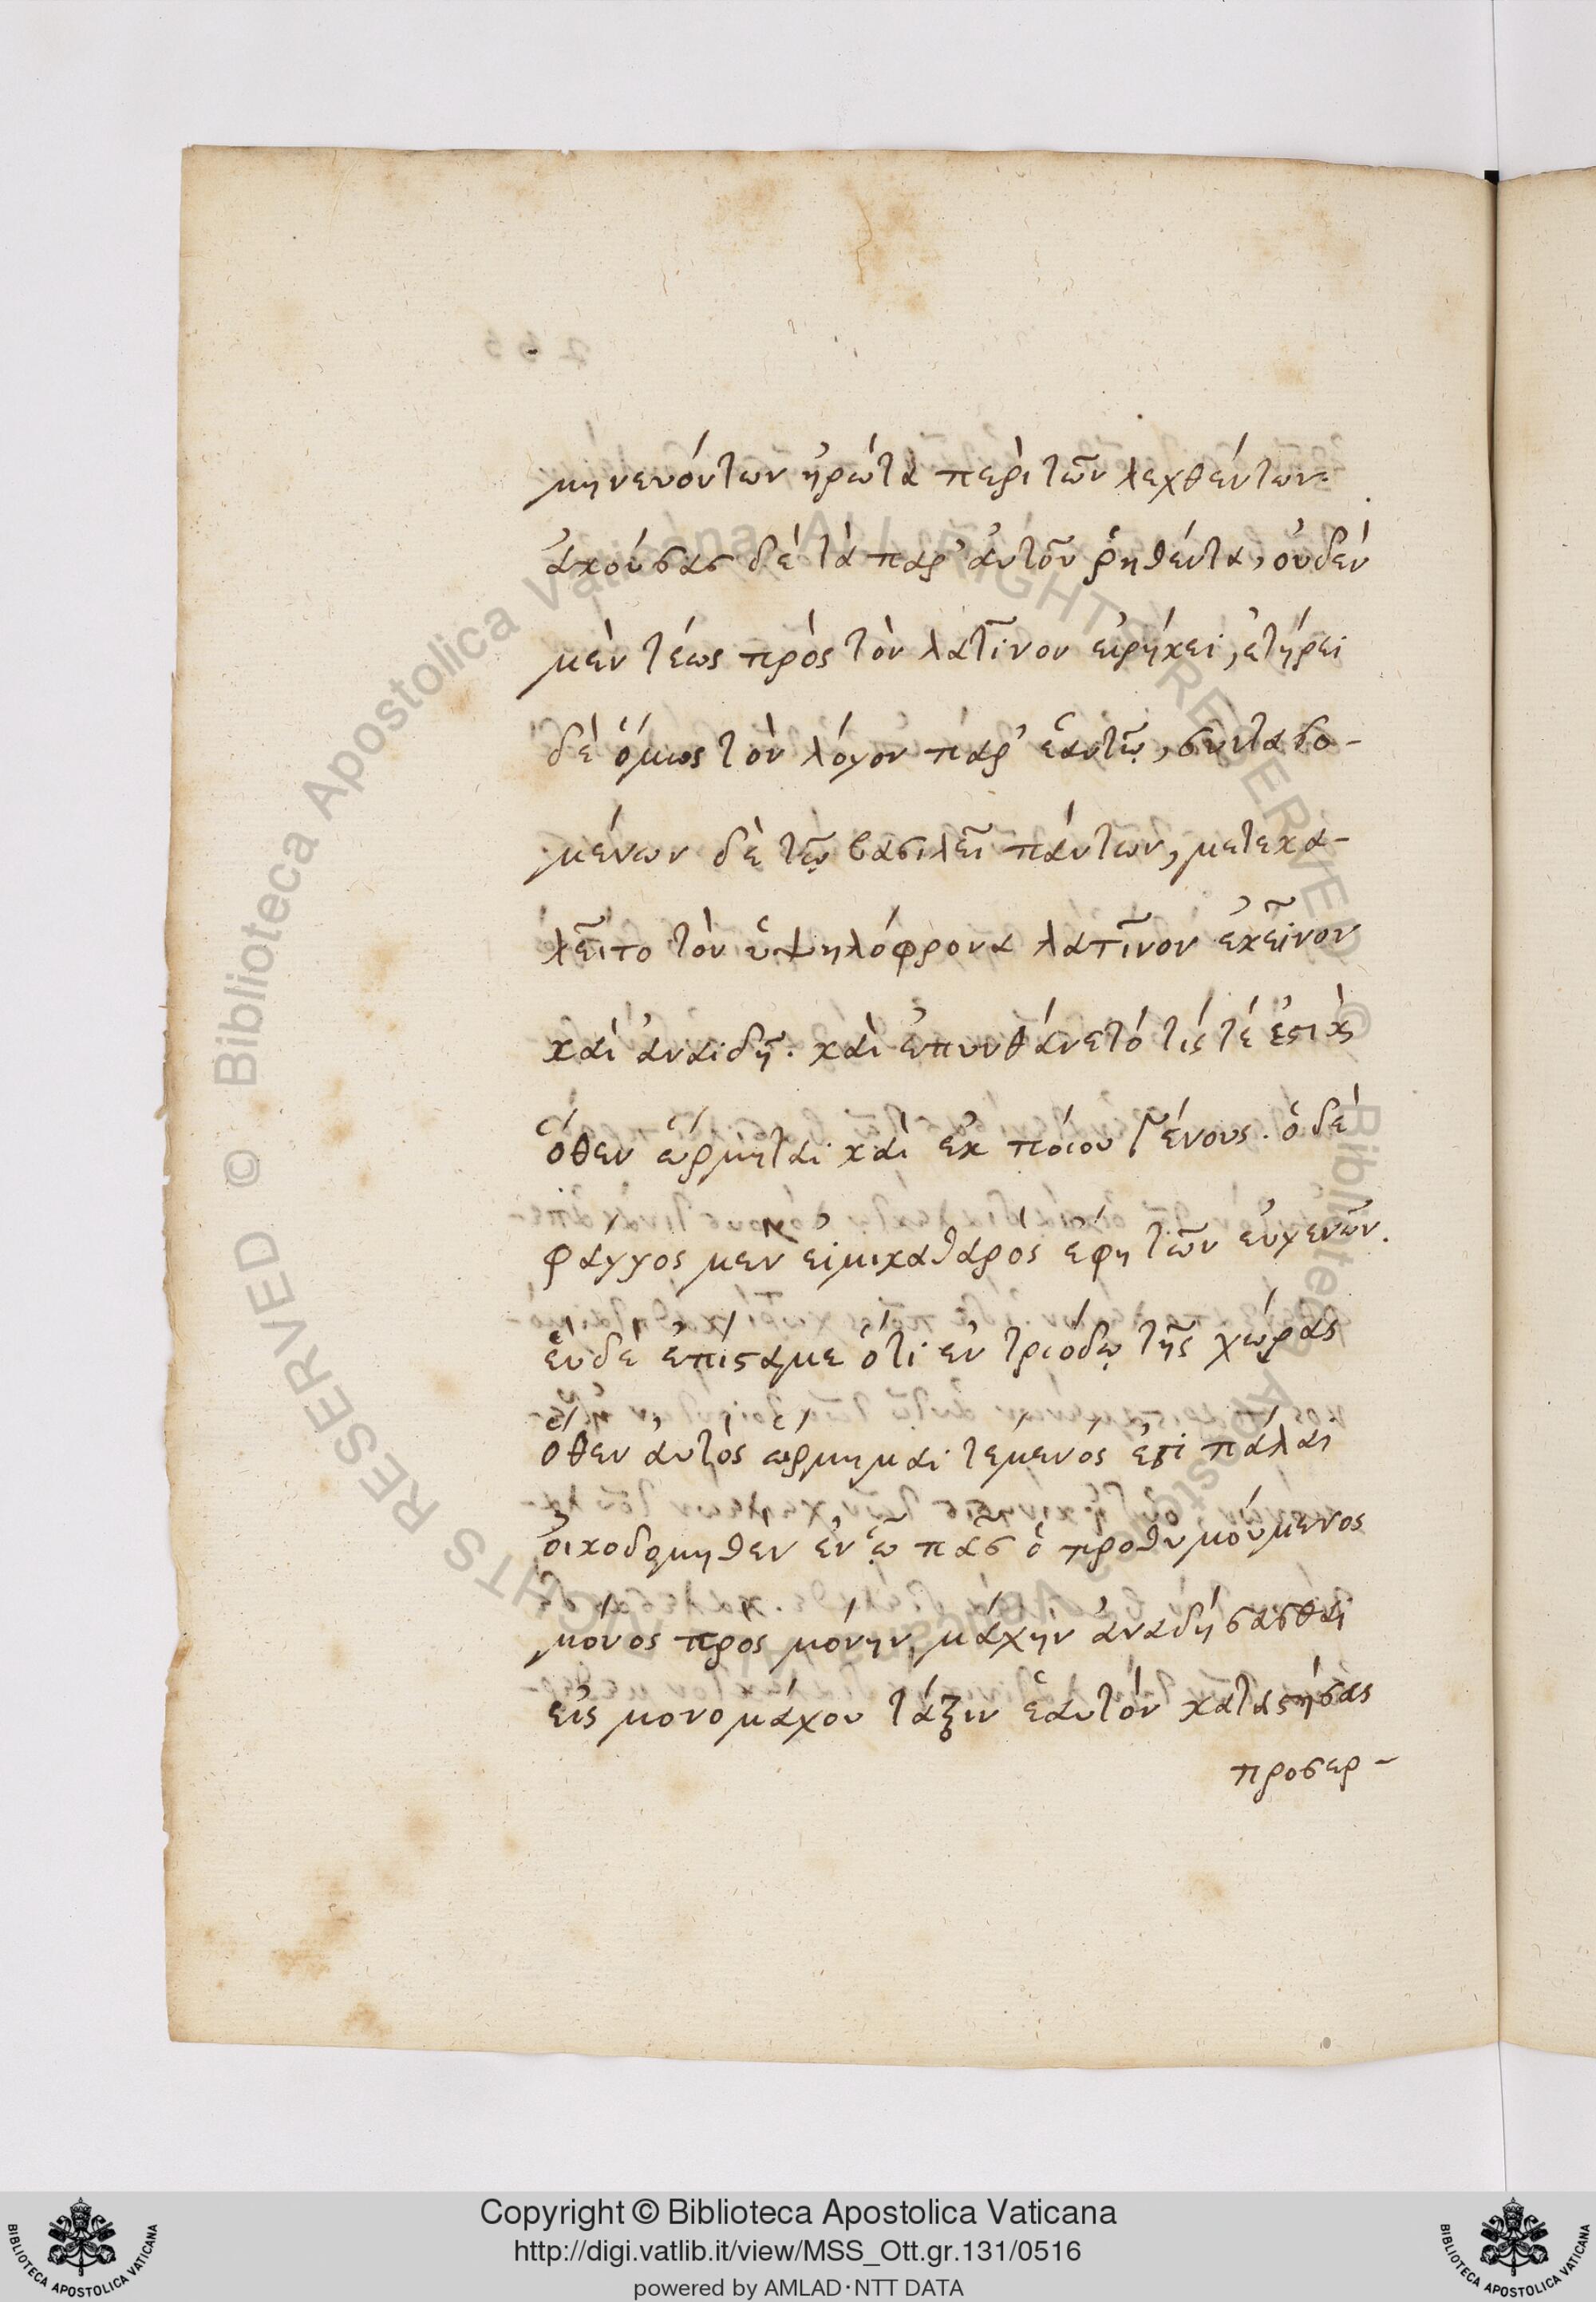 μηνευόντων ἠρώτα περὶ τῶν λεχθέντων.
ἀκούσας δὲ τὰ παρ' ἀυτοῦ ῥηθέντα, οὐδὲν
μὲν τέως πρὸς τὸν λατῖνον εἰρήκει, ἐτήρει
δὲ ὅμως τὸν λόγον παρ' ἑαυτῷ, συντασο-
μένων δὲ τῷ βασιλεῖ πάντων, μετεκα-
λεῖτο τὸν ὑψηλόφρονα λατῖνον ἐκεῖνον
καὶ ἀναιδῆ. καὶ ἐπυνθάνετό τίς τέ ἐστι κ̀
ὅθεν ὥρμηται καὶ ἐκ ποίου γένους. ὁ δὲ
φάγγος μεν εἰμι καθαρὸς ἔφη τῶν εὐγενῶν.
ἑν δὲ ἐπίσταμε ὅτι ἐν τριόδῳ τῆς χώρας
ὅθεν ἀυτὸς ὥρμημαι τέμενός ἐστι πάλαι
οἰκοδομηθὲν ἐν ᾧ πᾶς ὁ προθυμούμενος
μόνος πρὸς μόνην μάχην ἀναδήσασθαι
εἰς μονομάχου τάξιν ἑαυτὸν καταστήσας
προσερ-
Copyright © Biblioteca Apostolica Vaticana
http://digi.vatlib.it/view/MSS_Ott.gr.131/0516
powered by AMLAD·NTT DATA